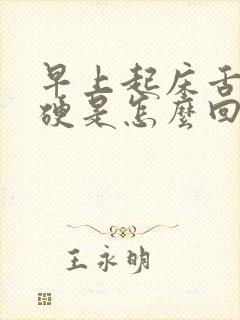 早上起床舌
硬是怎麼回
王永明